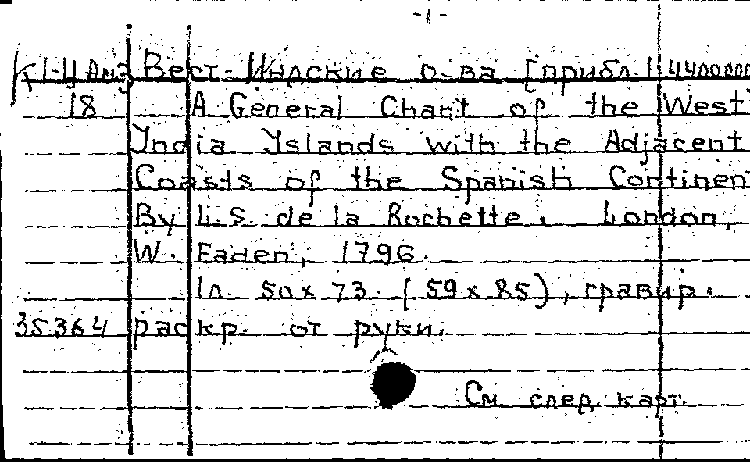 -1-
К 1-Ц Ам 3 Вест-Индские о-ва [прибл. 1:4400000
18 A General Chart of the West
India Islands with the Adjacent
Coasts of the Spanish Continen
By L.S. de la Rochette. London,
W. Faden, 1796.
1л. 50х73. (59х85), гравир.
35364 раскр. от руки.
См. след. карт.